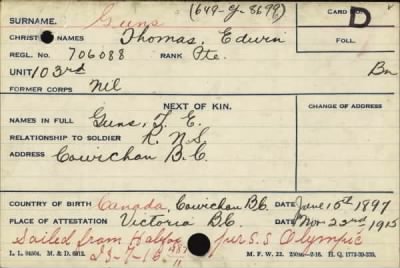 (649-G-8698)
SURNAME. Guns CARD NO.
CHRISTIAN NAMES Thomas, Edwin D
FOLL.
REGL. NO. 706088 RANK Pte.
UNIT 103rd Bn
FORMER CORPS Nil
NEXT OF KIN. CHANGE OF ADDRESS
NAMES IN FULL Guns, T. E.
RELATIONSHIP TO SOLDIER R. N. S.
ADDRESS Cowichan B.C.
COUNTRY OF BIRTH Canada, Cowichan B.C. DATE June 15th 1897
PLACE OF ATTESTATION Victoria B.C. DATE Nov 23rd 1915
Sailed from Halifax per S.S Olympic
23-7-16
L. L. M. & D. M. F. W. 22. H. Q. 1772-39-339.